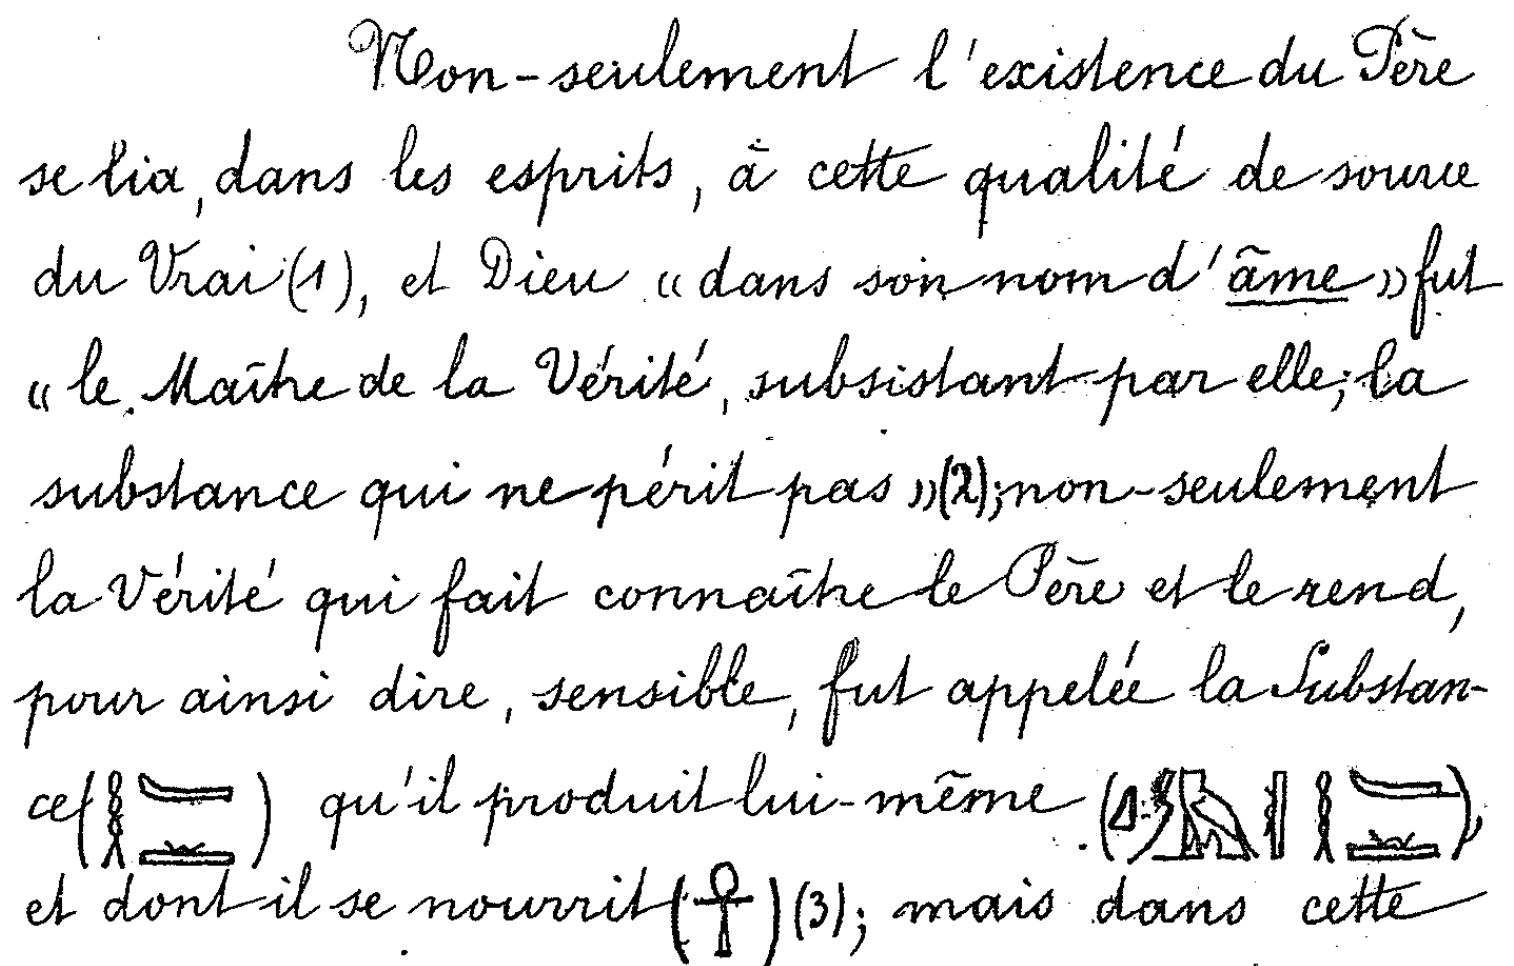 Non-seulement l'existence du Père
se lia, dans les esprits, à cette qualité de source
du Vrai (1), et Dieu « dans son nom d'âme » fut
« le Maître de la Vérité, subsistant par elle; la
substance qui ne périt pas » (2); non-seulement
la Vérité qui fait connaître le Père et le rend,
pour ainsi dire, sensible, fut appelée la Substan-
ce ( ) qu'il produit lui-même ( ),
et dont il se nourrit (𓋹) (3); mais dans cette